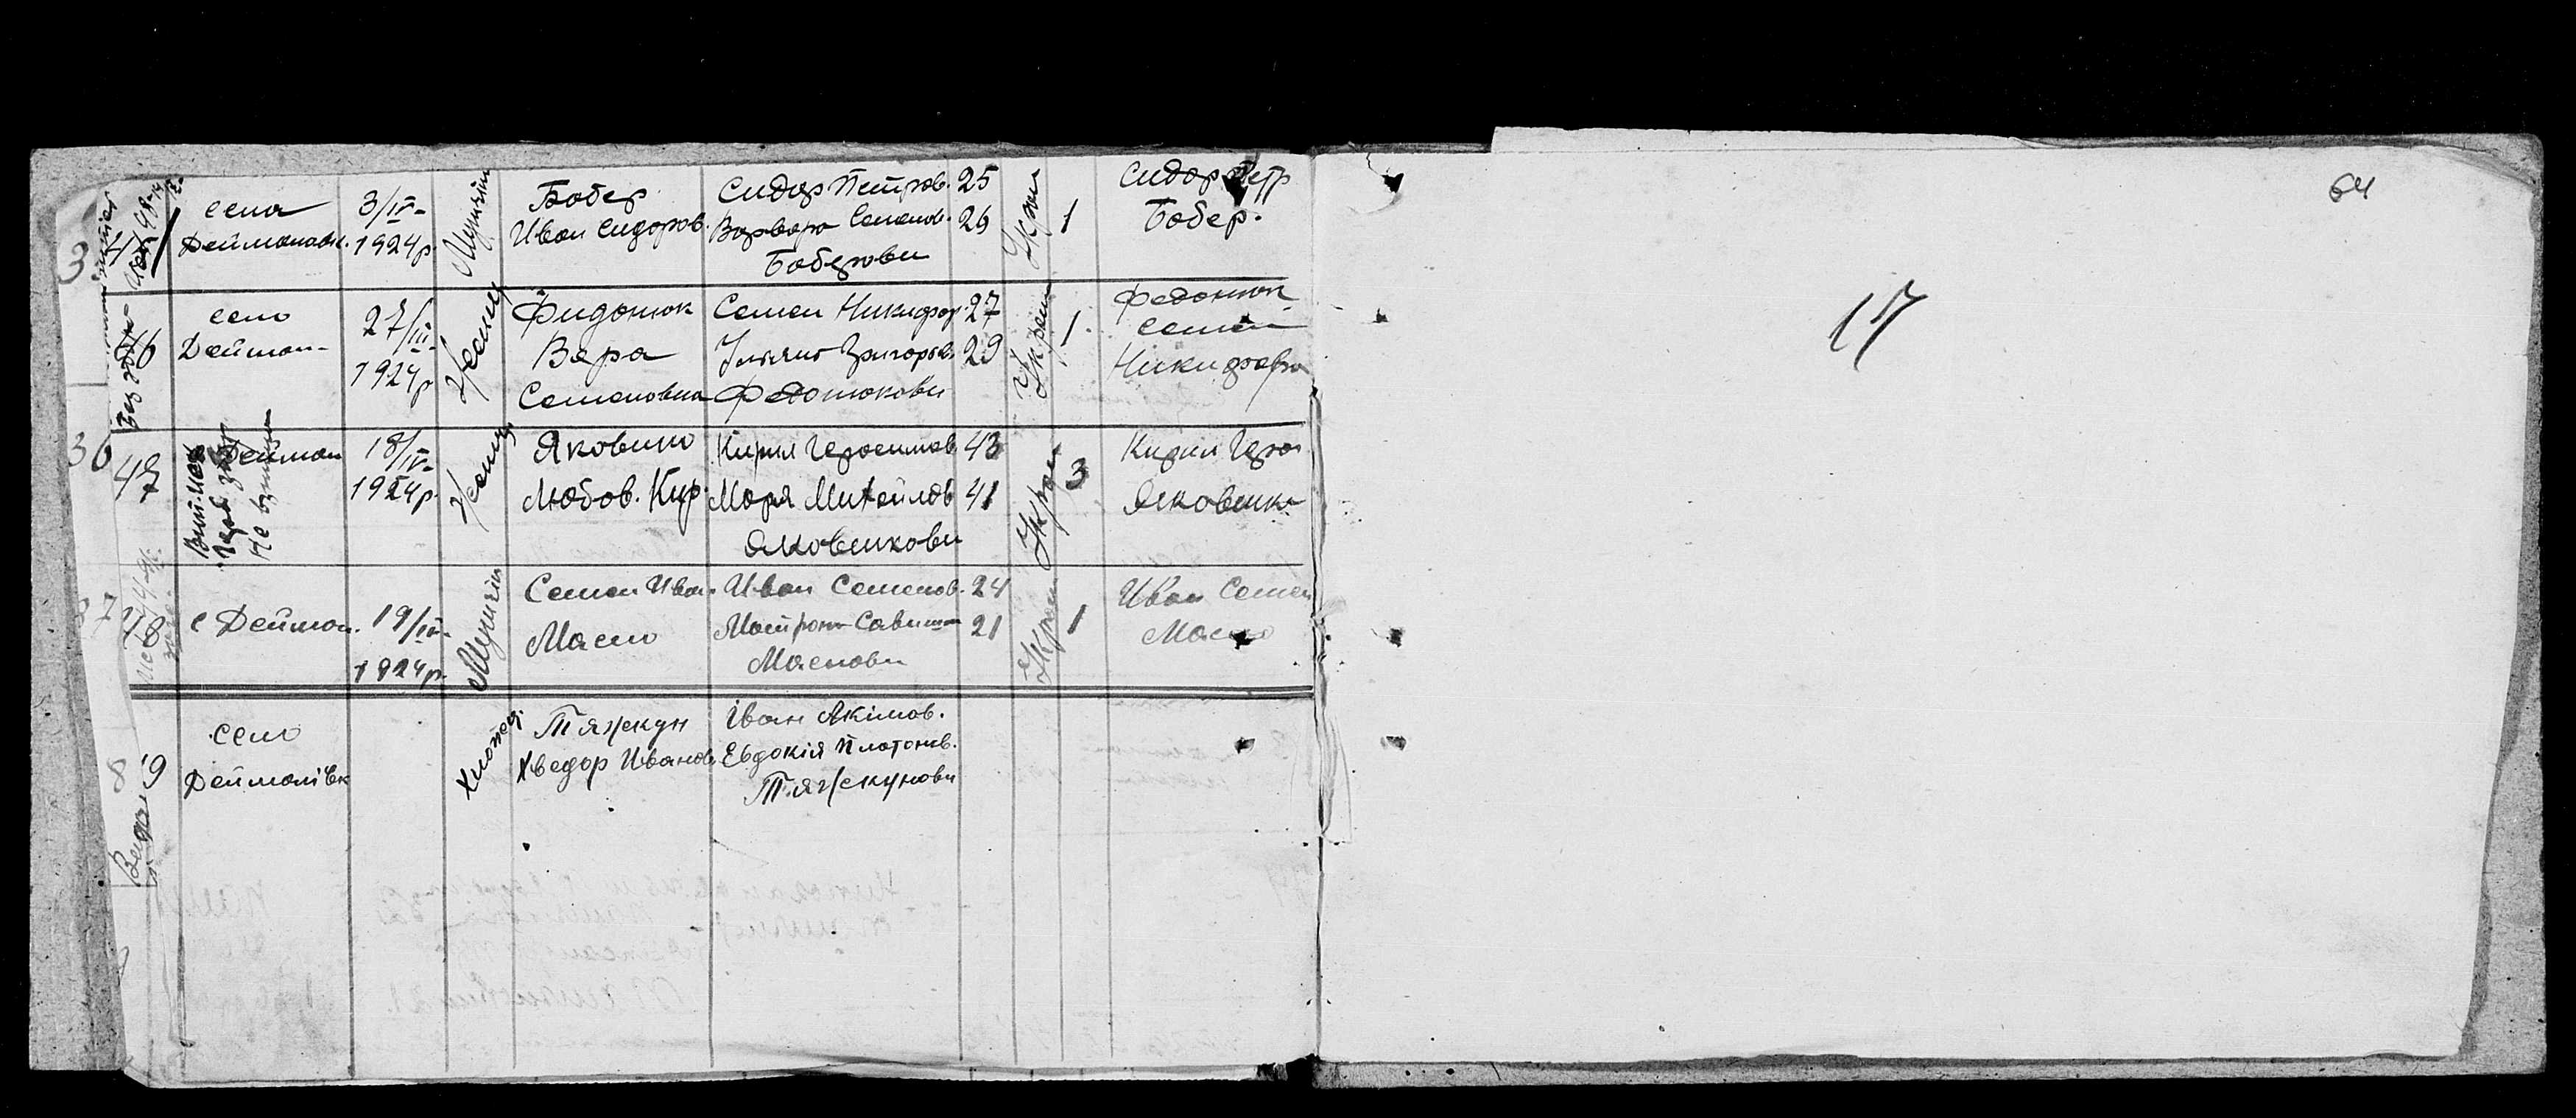 64
17
села
Деймановк.
3/IV-
1924р.
Мужчін
Бобер
Иван Сидоров.
Сидор Петров. 25
Варвара Семенов. 26
Боберови
Украї
1
Сидор Петр
Бобер.
46
село
Дейман-
27/III-
1924р
Женщ
Фидотюк
Вера
Семеновна
Семен Никифор. 27
Ульяна Григорьев. 29
Федотюкови
Украї
1.
Федотюк
Семен
Никифоров
36
47
Дейман
Не взята
18/IV-
1924р.
Женщ.
Яковенко
Любов. Кир.
Кирил Герасимов. 43
Мария Михайлов 41
Яковенкови
Украї
3
Кирил Гера
Яковенко
37
48
с Дейман.
19/IV-
1924р.
Мужчін
Семен Иван.
Масло
Иван Семенов. 24
Матрона Савишна 21
Маслови
Украї
1
Иван Семен
Масло
село
Дейманівк
Хлопец
Тяжкун
Хведор Иванов.
Іван Акімов.
Евдокія Платонов.
Тяжкунови